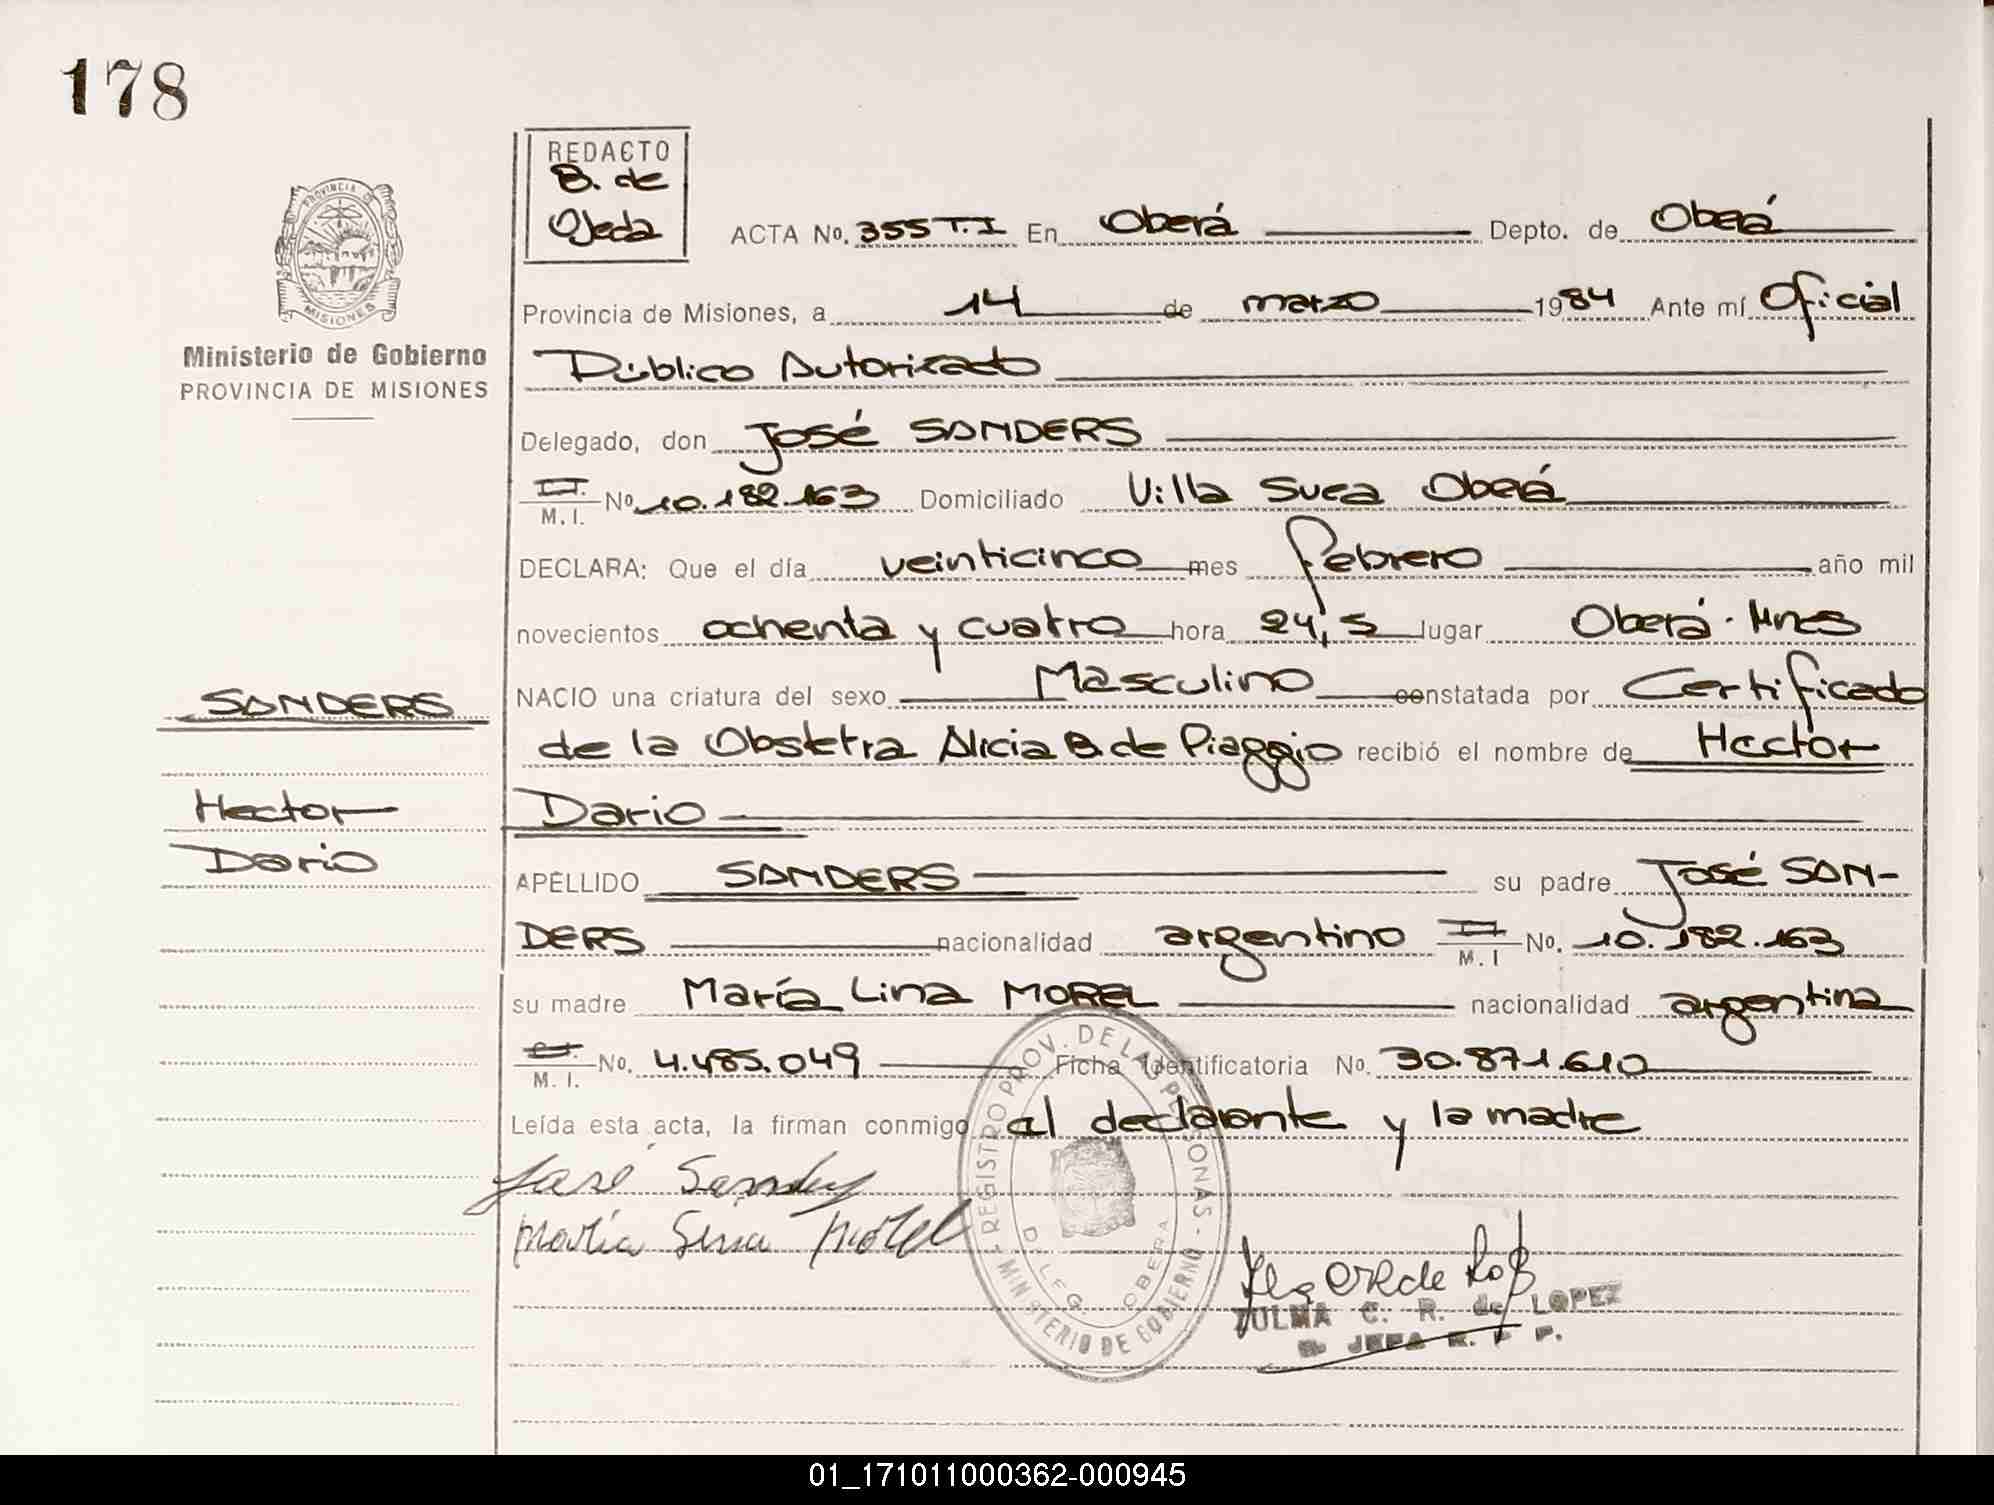 178
REDACTO
B. de
Ojeda
ACTA No. 355 T. I En Oberá Depto. de Oberá
Provincia de Misiones, a 14 de marzo 1984 Ante mí Oficial
Público Autorizado
Delegado, don José SANDERS
M. I. No. 10.182.163 Domiciliado Villa Sueca Oberá
DECLARA: Que el día veinticinco mes febrero año mil
novecientos ochenta y cuatro hora 24,5 lugar Oberá - Mnes
NACIO una criatura del sexo Masculino constatada por Certificado
de la Obstetra Alicia B. de Piaggio recibió el nombre de Hector
Dario
APELLIDO SANDERS su padre José SAN-
DERS nacionalidad argentino M. I No. 10.182.163
su madre María Lina MOREL nacionalidad argentina
M. I. No. 4.485.049 Ficha Identificatoria No. 30.871.610
Leída esta acta, la firman conmigo el declarante y la madre
José Sanders
María Lina Morel
PROVINCIA DE
MISIONES
Ministerio de Gobierno
PROVINCIA DE MISIONES
SANDERS
Hector
Dario
REGISTRO PROV. DE LAS PERSONAS - MINISTERIO DE GOBIERNO
DELEG. OBERA
ZULMA C. R. de LOPEZ
JEFA R. P. P.
01_171011000362-000945